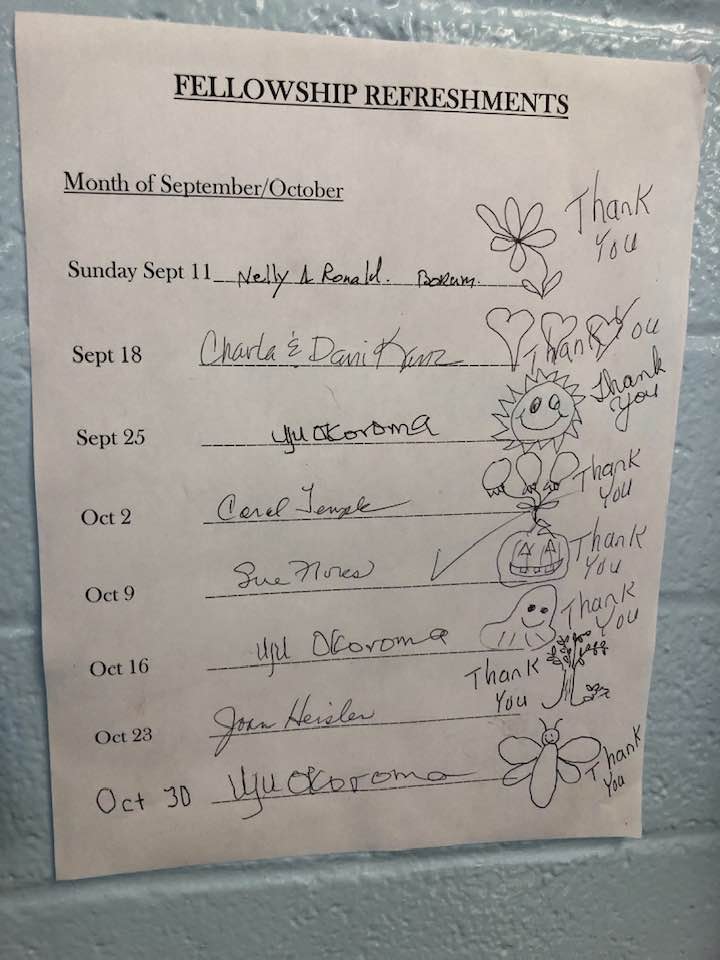 FELLOWSHIP REFRESHMENTS
Month of September/October
Thank
You
Sunday Sept 11 Nelly & Ronald. Borum.
Sept 18 Charla & Dani Thank You
Thank
You
Sept 25 Uju Okoroma
Thank
You
Oct 2 Carol Temple
Thank
You
Oct 9 Sue Flores
Thank
You
Oct 16 Uju Okoroma
Thank
You
Oct 23 Joan Heisler
Thank
You
Oct 30 Uju Okoroma